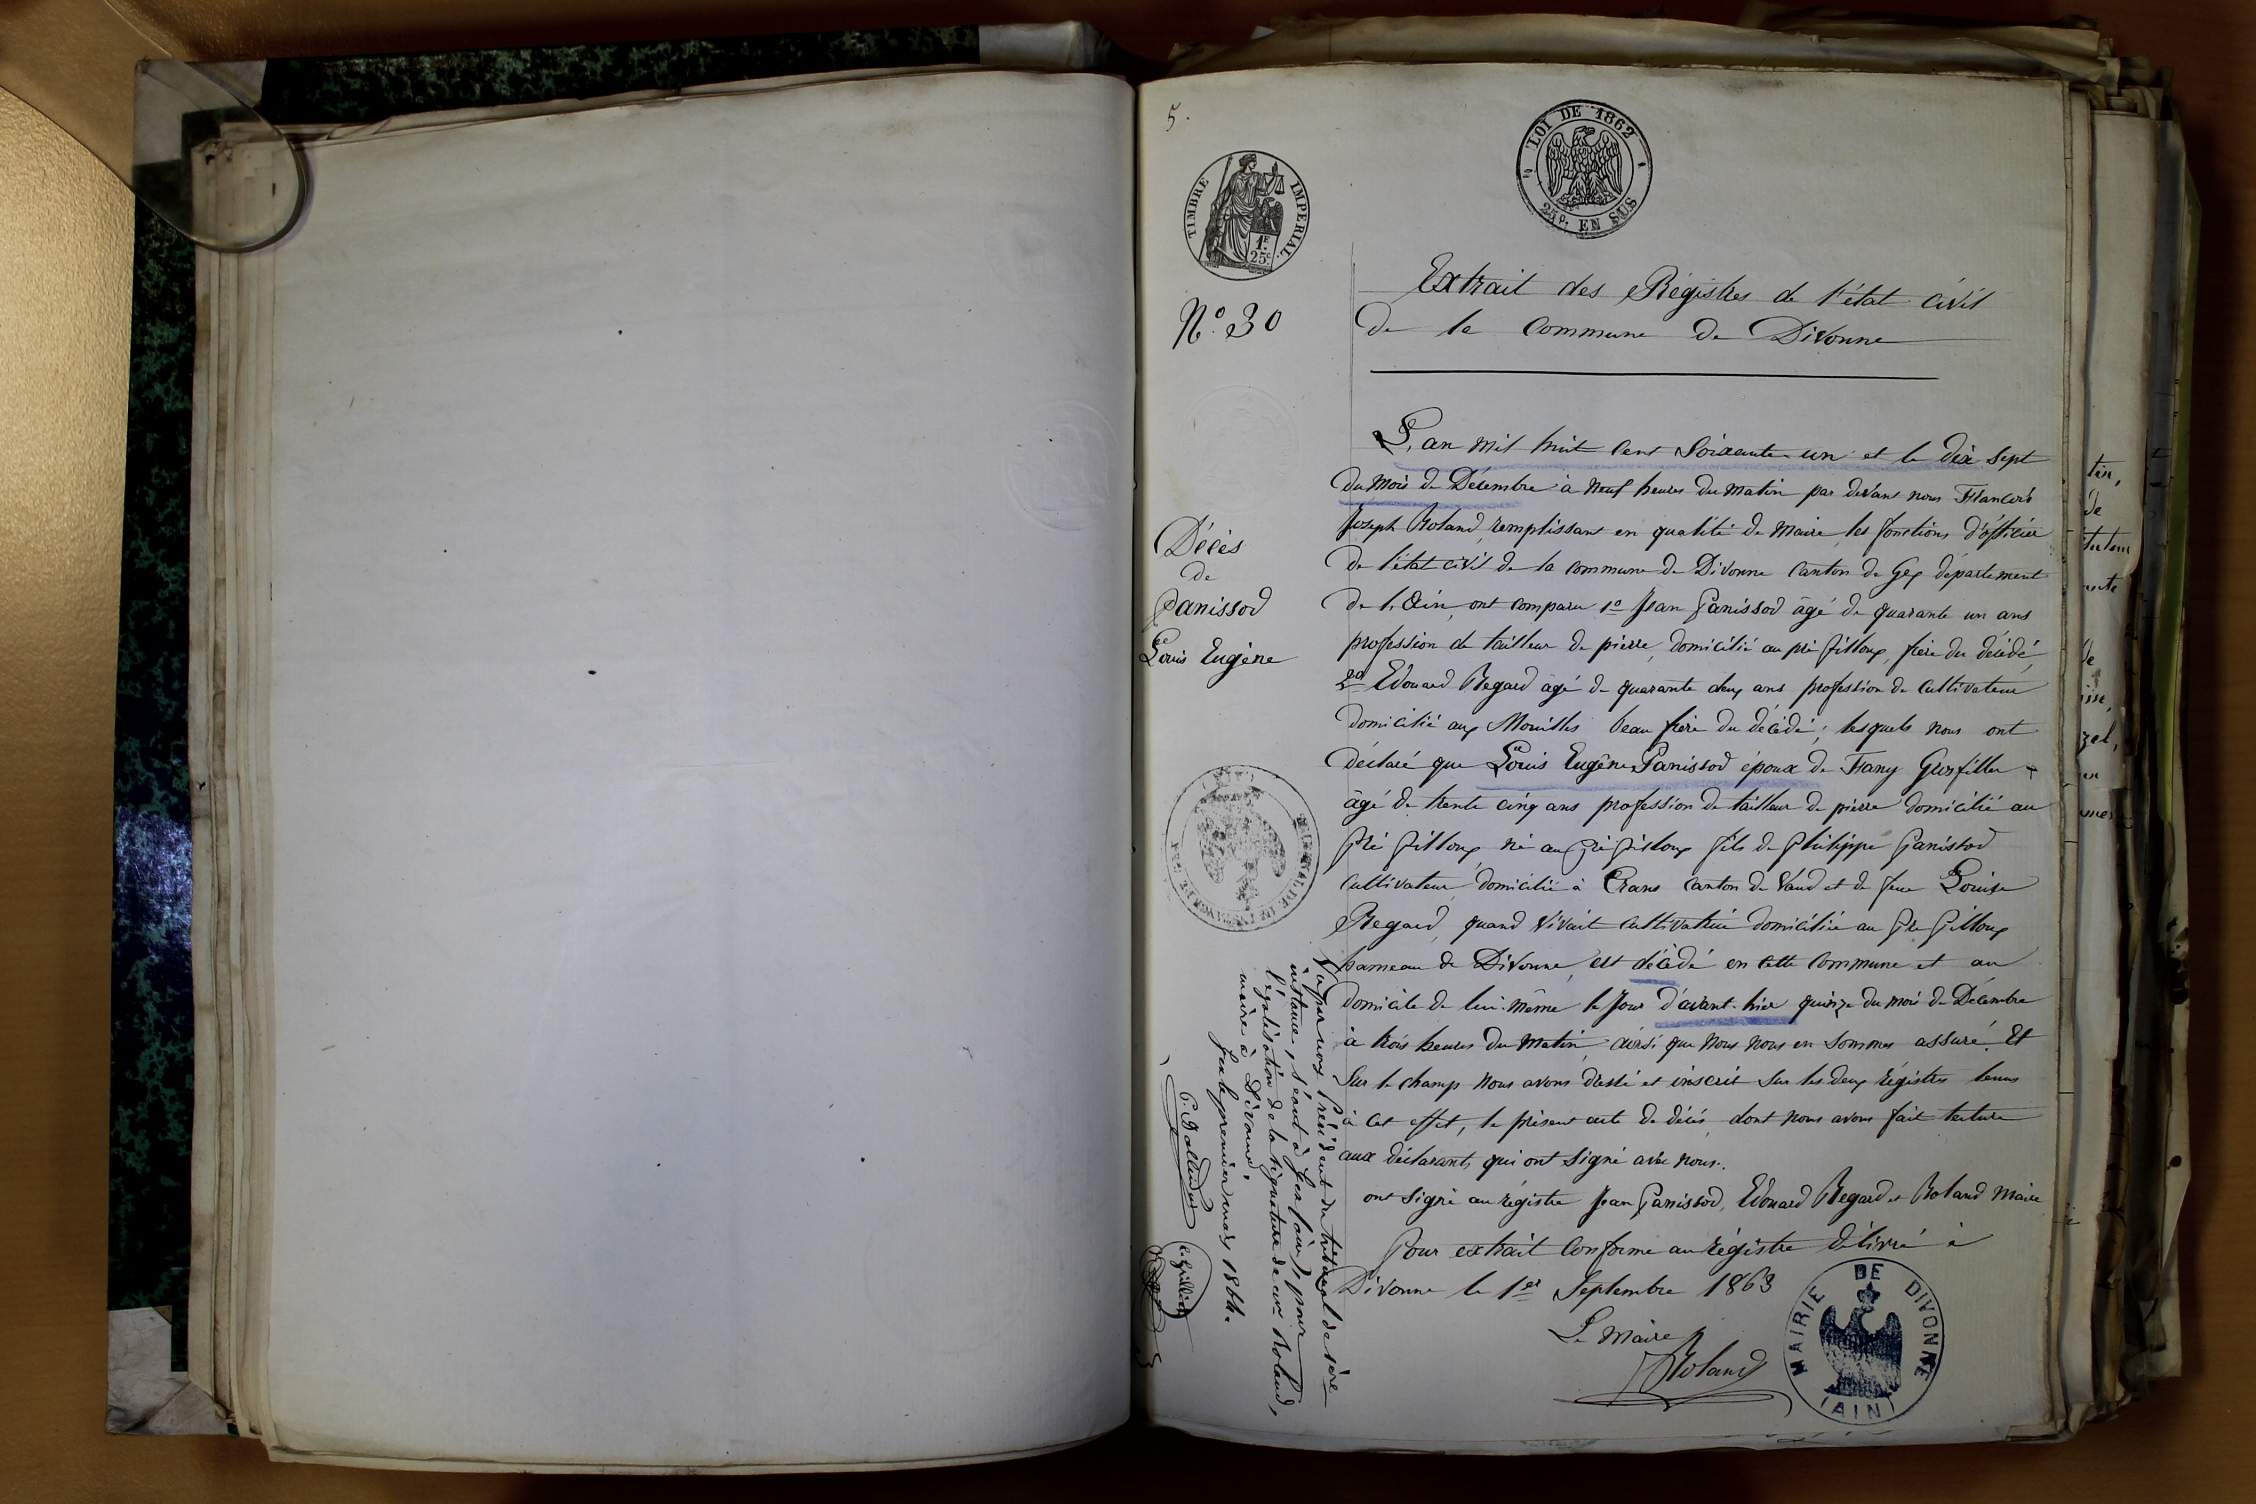 5.
LOI DE 1862
25 P. EN SUS
TIMBRE IMPERIAL
1F. 25c.
N.o 30
Extrait des Régistres de l'état civil
de la Commune de Divonne
L'an mil huit cent Soixante-un et le dix Sept
du Mois de Décembre à neuf heures du Matin par devant nous François
Joseph Roland, remplissant en qualité de Maire, les fonctions d'officier
de l'état civil de la commune de Divonne Canton de Gex département
de l'Ain, ont comparu 1o Jean Panissod âgé de quarante un ans
profession de tailleur de pierre, domicilié au pré filloux, frère du décédé,
2o Edouard Regard âgé de quarante deux ans profession de Cultivateur
domicilié aux Mouilles beau frère du décédé; lesquels nous ont
déclaré que Louis Eugène Panissod époux de Fany
âgé de trente cinq ans profession de tailleur de pierre domicilié au
Pré filloux né au Pré filloux fils de Philippe Panissod
cultivateur, domicilié à Crans canton de Vaud et de feue Louise
Regard, quand vivait cultivatrice domiciliée au Pré filloux
hameau de Divonne, est décédé en cette commune et au
domicile de lui-même le jour d'avant-hier quinze du mois de Décembre
à trois heures du matin, ainsi que nous nous en sommes assuré. Et
Sur le champ nous avons dressé et inscrit sur les deux régistres tenus
à cet effet, le présent acte de décès, dont nous avons fait lecture
aux déclarants, qui ont signé avec nous.
ont signé au régistre Jean Panissod, Edouard Regard et Roland Maire
Pour extrait conforme au régistre délivré à
Divonne le 1er Septembre 1863
Le Maire
Roland
MAIRIE DE DIVONNE
(AIN)
Décès
de
Panissod
Louis Eugène
Vu par nous Président du tribunal de 1ère
instance, séant à Gex (ain), pour
légalisation de la signature de Mr Roland,
maire à Divonne,
Gex le premier mars 1864.